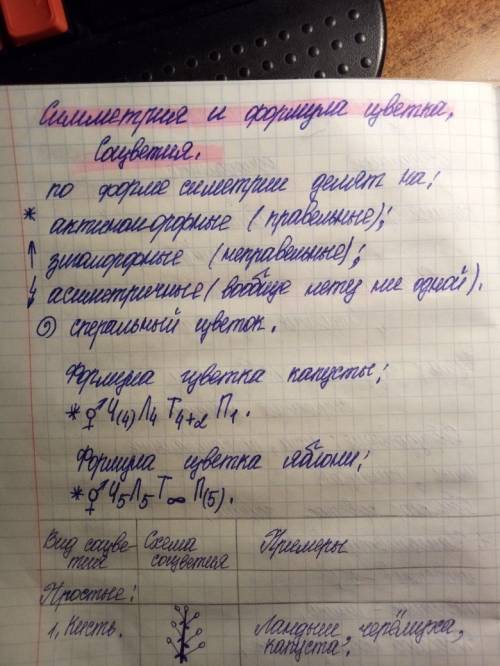 Симметрия и формула цветка.
Соцветия.
по форме симетрии делят на:
* актиноморфные (правельные);
↑ зигаморфные (неправельные);
↯ асиметричные (вообще нету ни одной).
спералъный цветок.
Формула цветка капусты:
*⚥Ч(4)Л4Т4+2П1.
Формула цветка яблони:
*⚥Ч5Л5Т∞П(5).
Вид соцве-тия Схема соцветия Примеры
Простые:
1, Кисть. Ландыш, черёмуха, капуста,